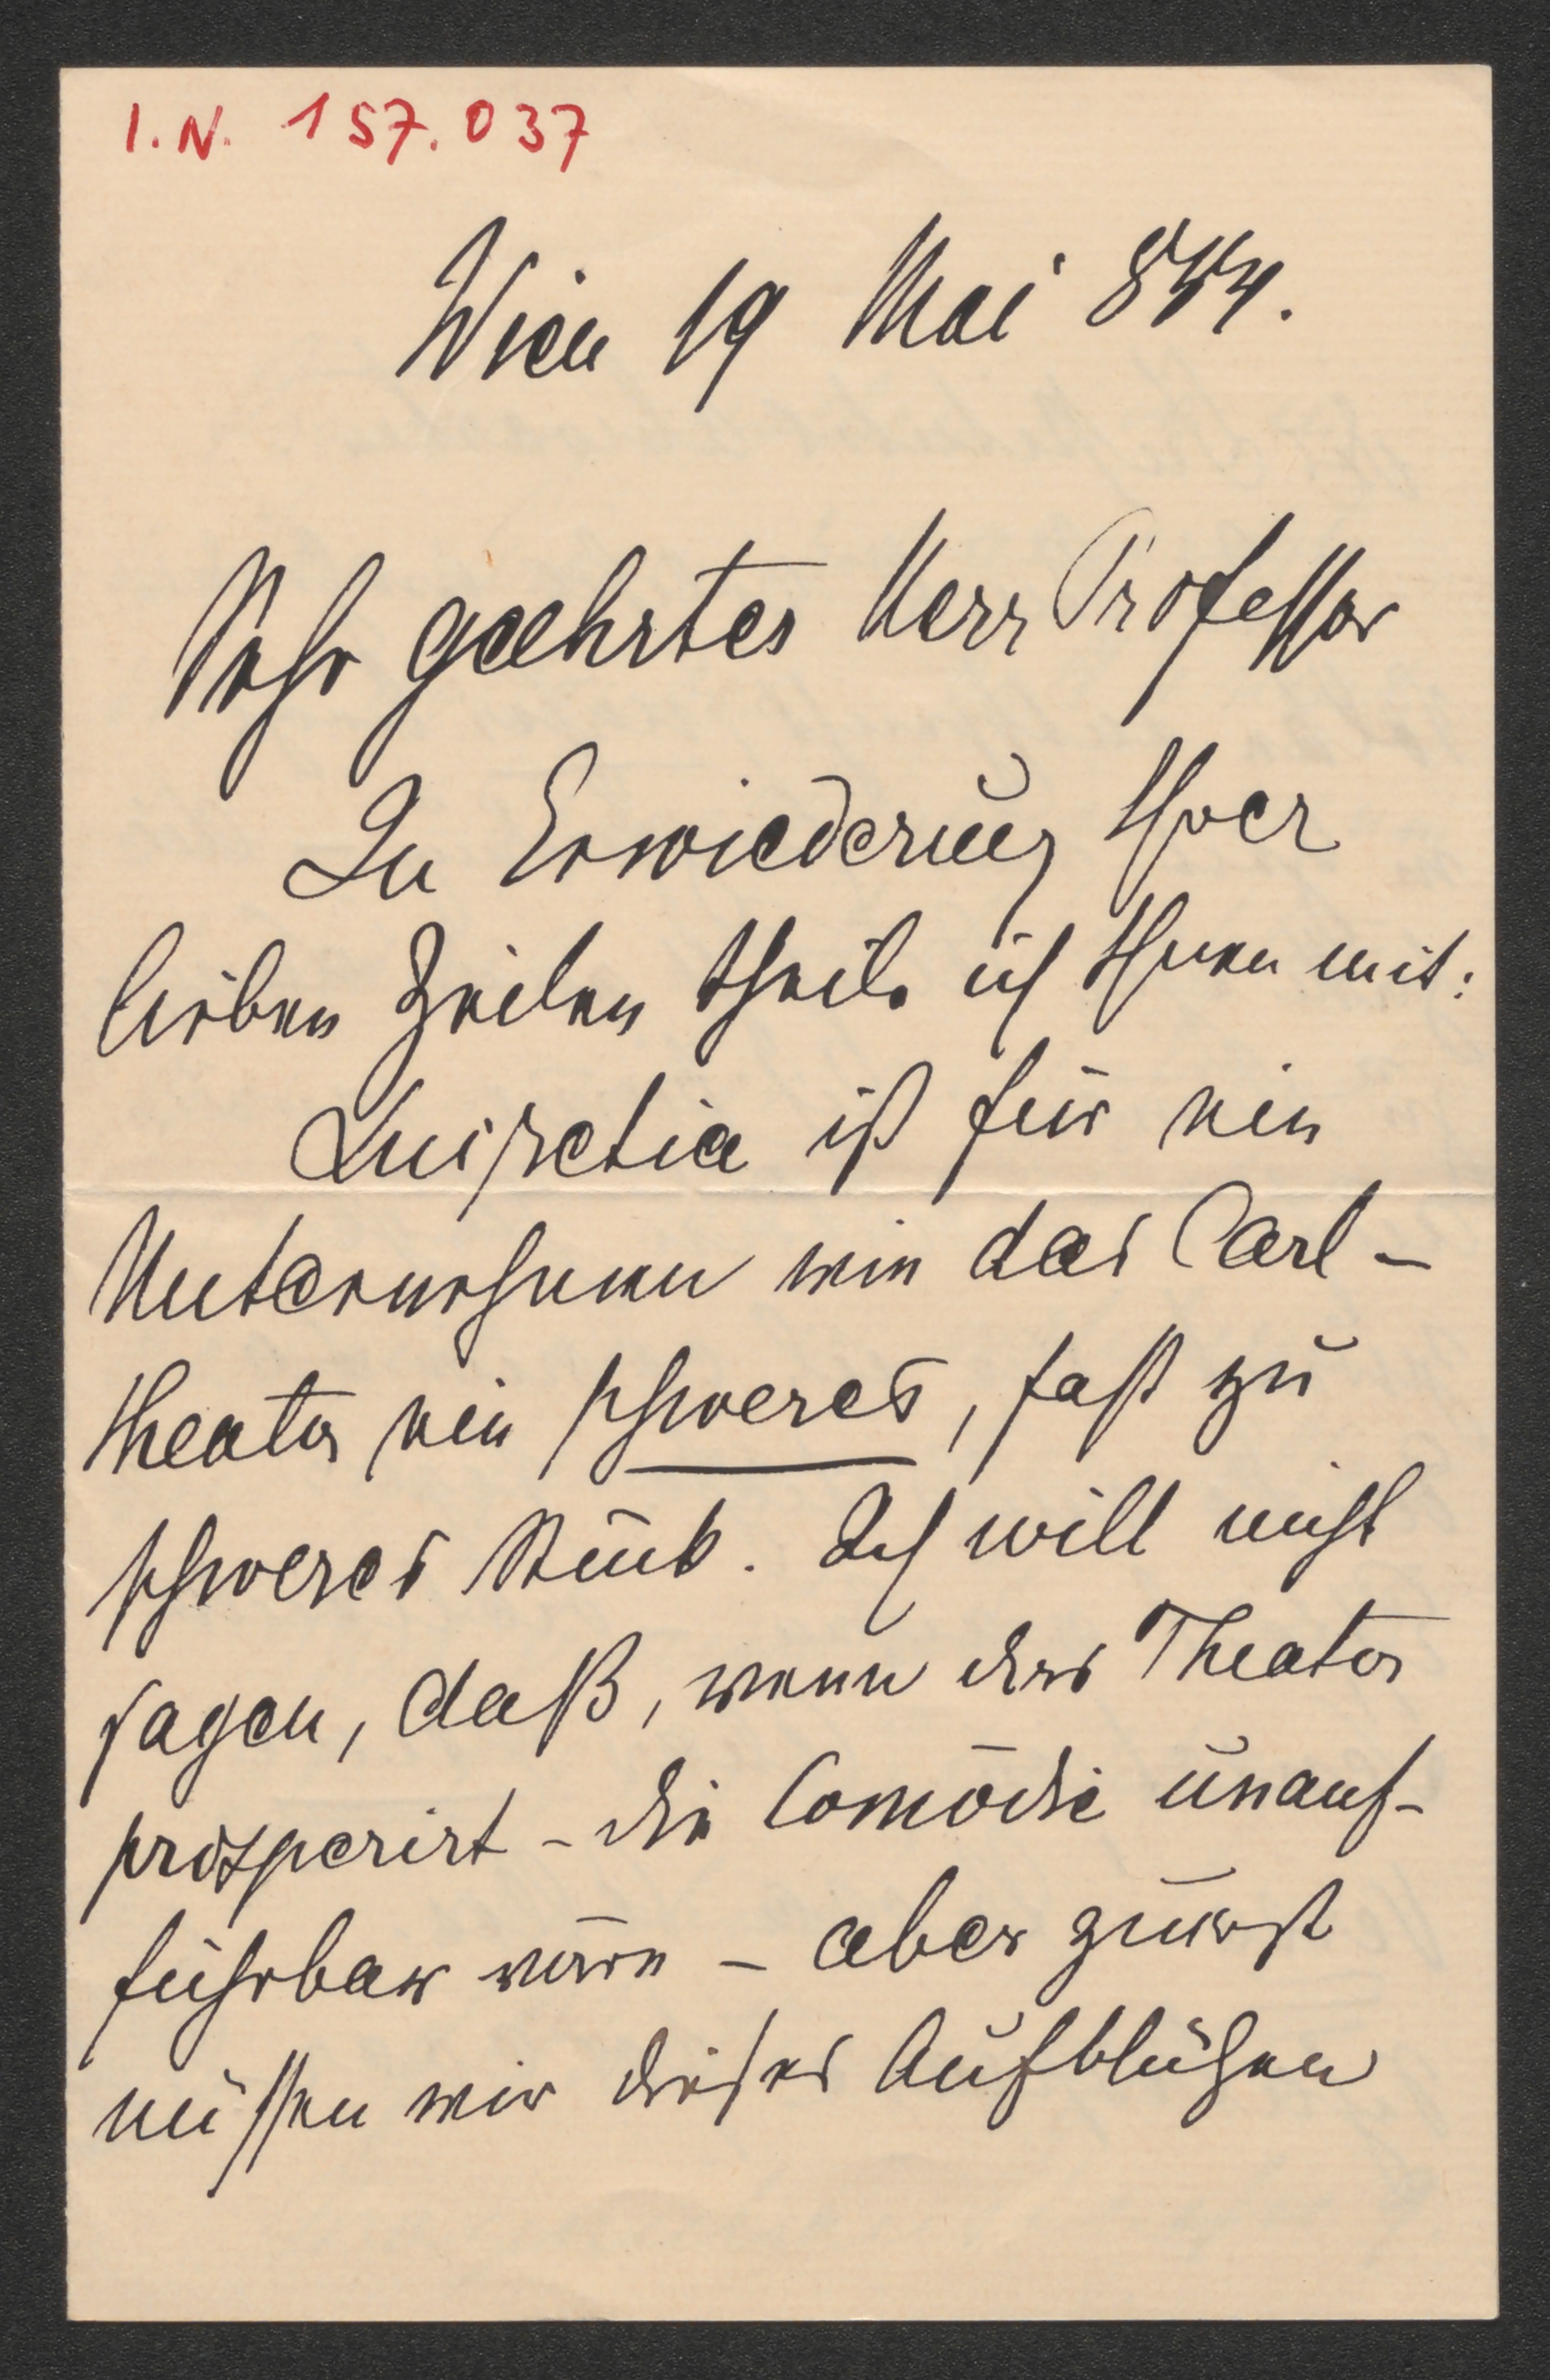 I.N. 157.037
Wien 19 Mai 844.
Sehr geehrter Herr Professor
In Erwiederung Ihrer
lieben Zeilen theile ich Ihnen mit:
ist für ein
Unternehmen wie das Carl-
theater ein schweres, fast zu
schweres Stück. Ich will nicht
sagen, daß, wenn das Theater
prosperirt - die Comödie unauf-
führbar wäre - aber zuerst
müssen wir dieses Aufblühen